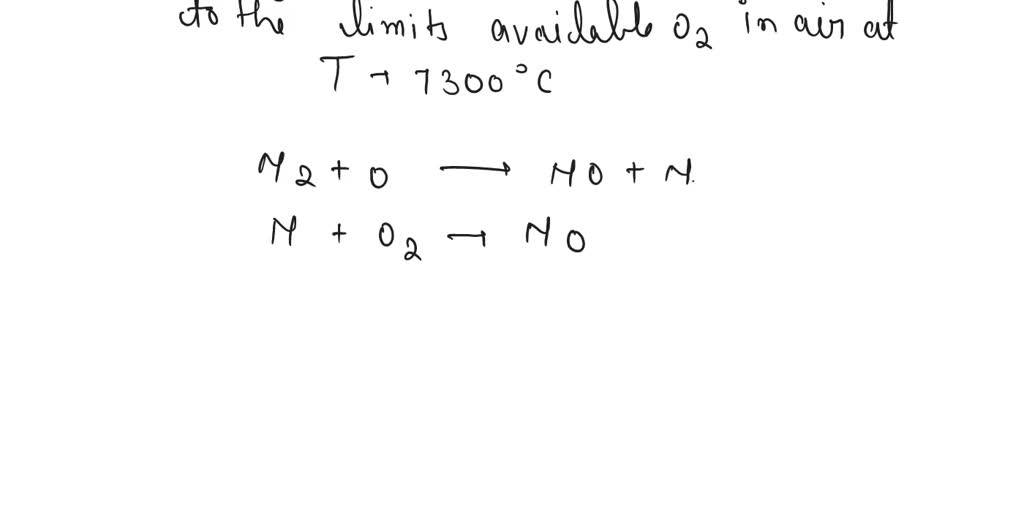 to the limits available O2 in air at
T → 7300°C
N2 + O → NO + N.
N + O2 → NO